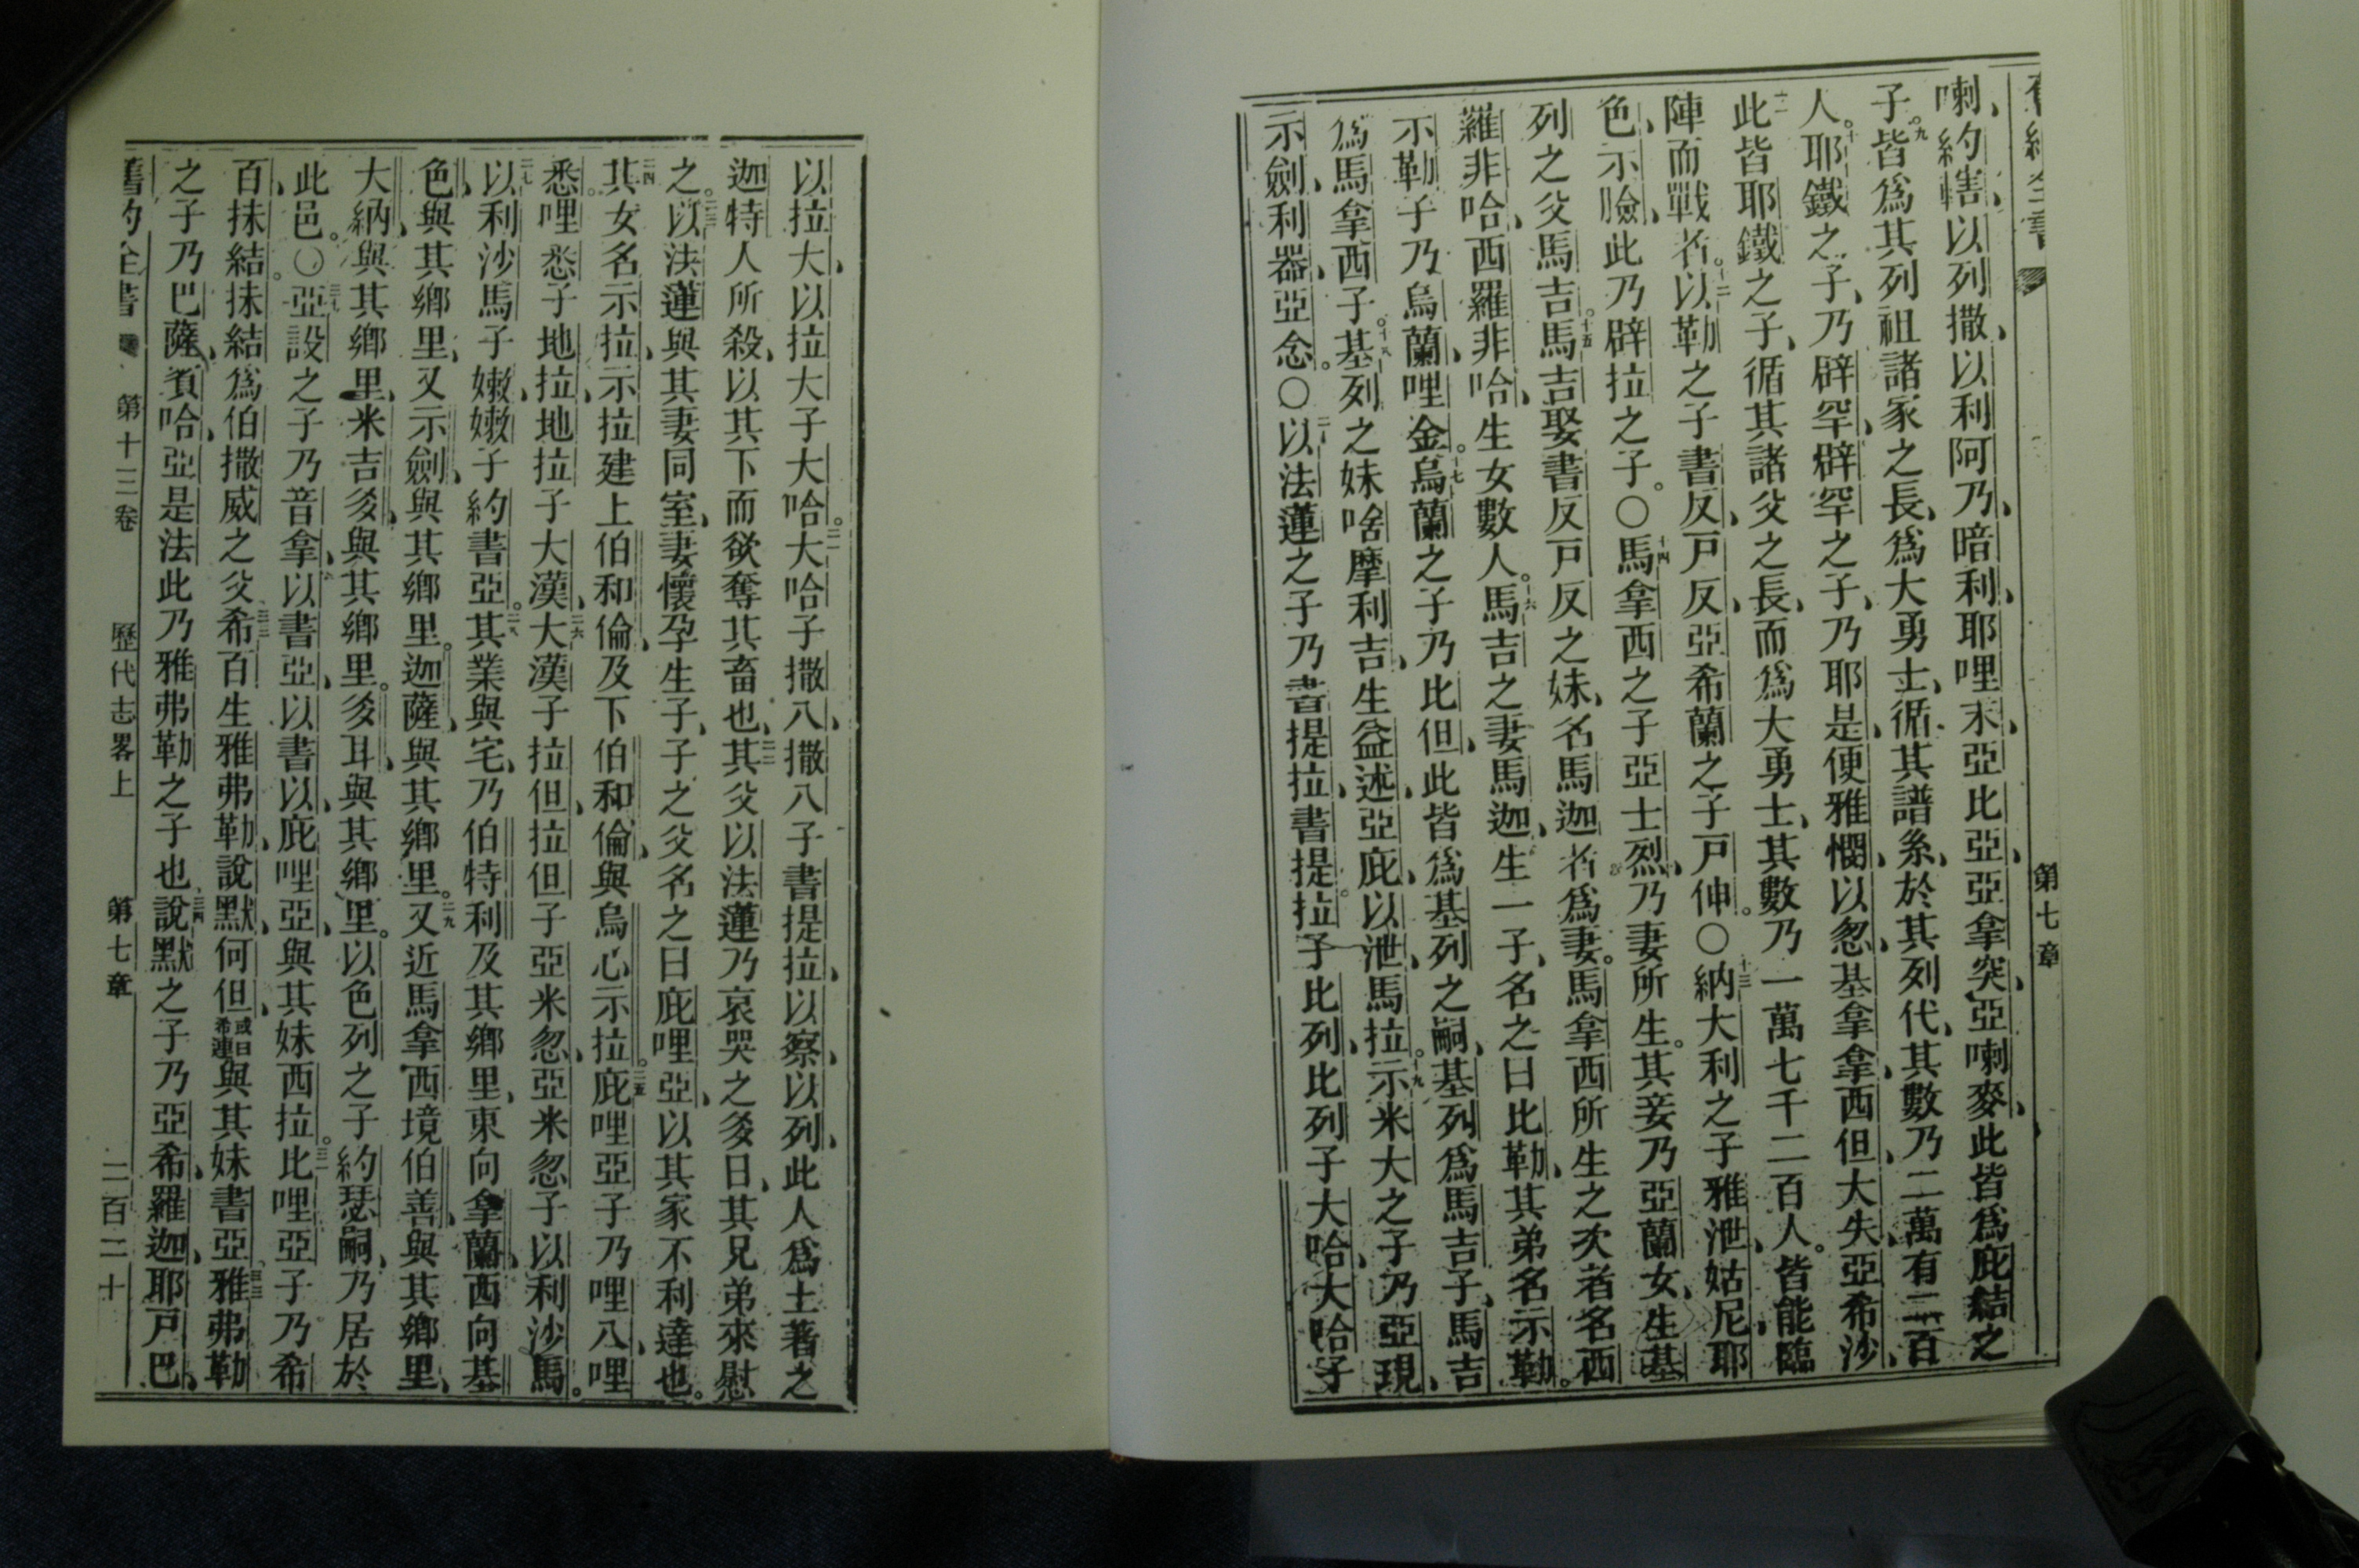 第七章
喇、約轄、以列撒、以利阿乃、暗利、耶哩末、亞比亞、亞拿突、亞喇麥、此皆爲庇結之
子。九皆爲其列祖諸家之長、爲大勇士、循其譜系、於其列代、其數乃二萬有二百
人。十耶鐵之子、乃辟罕、辟罕之子、乃耶是、便雅憫、以忽、基拿拿、西但、大失、亞希沙、
十一此皆耶鐵之子、循其諸父之長、而爲大勇士、其數乃一萬七千二百人。皆能臨
陣而戰者。十二以勒之子書反、戸反、亞希蘭之子戸伸。〇十三納大利之子雅泄、姑尼、耶
色、示臉、此乃辟拉之子。〇十四馬拿西之子亞士烈、乃妻所生。其妾乃亞蘭女、生基
列之父馬吉。十五馬吉娶書反戸反之妹、名馬迦者爲妻。馬拿西所生之次者名西
羅非哈、西羅非哈、生女數人。十六馬吉之妻馬迦、生一子、名之曰比勒、其弟名示勒。
示勒子乃烏蘭、哩金。十七烏蘭之子乃比但、此皆爲基列之嗣、基列爲馬吉子、馬吉
爲馬拿西子。十八基列之妹哈摩利吉、生益述、亞庇、以泄、馬拉。十九示米大之子乃亞現、
示劍、利器、亞念。〇二十以法蓮之子乃書提拉、書提拉子比列、比列子大哈、大哈子
以拉大、以拉大子大哈。二一大哈子撒八、撒八子書提拉、以察、以列、此人爲土著之
迦特人所殺、以其下而欲奪其畜也、二二其父以法蓮乃哀哭之多日、其兄弟來慰
之。二三以法蓮與其妻同室、妻懷孕生子、子之父名之曰庇哩亞、以其家不利達也。
二四其女名示拉、示拉建上伯和倫、及下伯和倫、與烏心示拉。二五庇哩亞子乃哩八、哩
悉。哩悉子地拉、地拉子大漢、二六大漢子拉但、拉但子亞米忽、亞米忽子以利沙馬。
二七以利沙馬子嫩、嫩子約書亞。二八其業與宅、乃伯特利及其鄉里、東向拿蘭、西向基
色、與其鄉里、又示劍、與其鄉里。迦薩、與其鄉里。二九又近馬拿西境伯善、與其鄉里、
大納、與其鄉里、米吉多、與其鄉里。多耳、與其鄉里。以色列之子約瑟嗣、乃居於
此邑。〇三十亞設之子乃音拿、以書亞、以書以、庇哩亞、與其妹西拉。三一比哩亞子乃希
百、抹結。抹結爲伯撒威之父、三二希百生雅弗勒、說默、何但、或曰希連與其妹書亞。三三雅弗勒
之子乃巴薩、賓哈、亞是法、此乃雅弗勒之子也、三四說默之子乃亞希、羅迦、耶戸巴、
舊約全書 第十三卷 歷代志畧上 第七章 二百二十